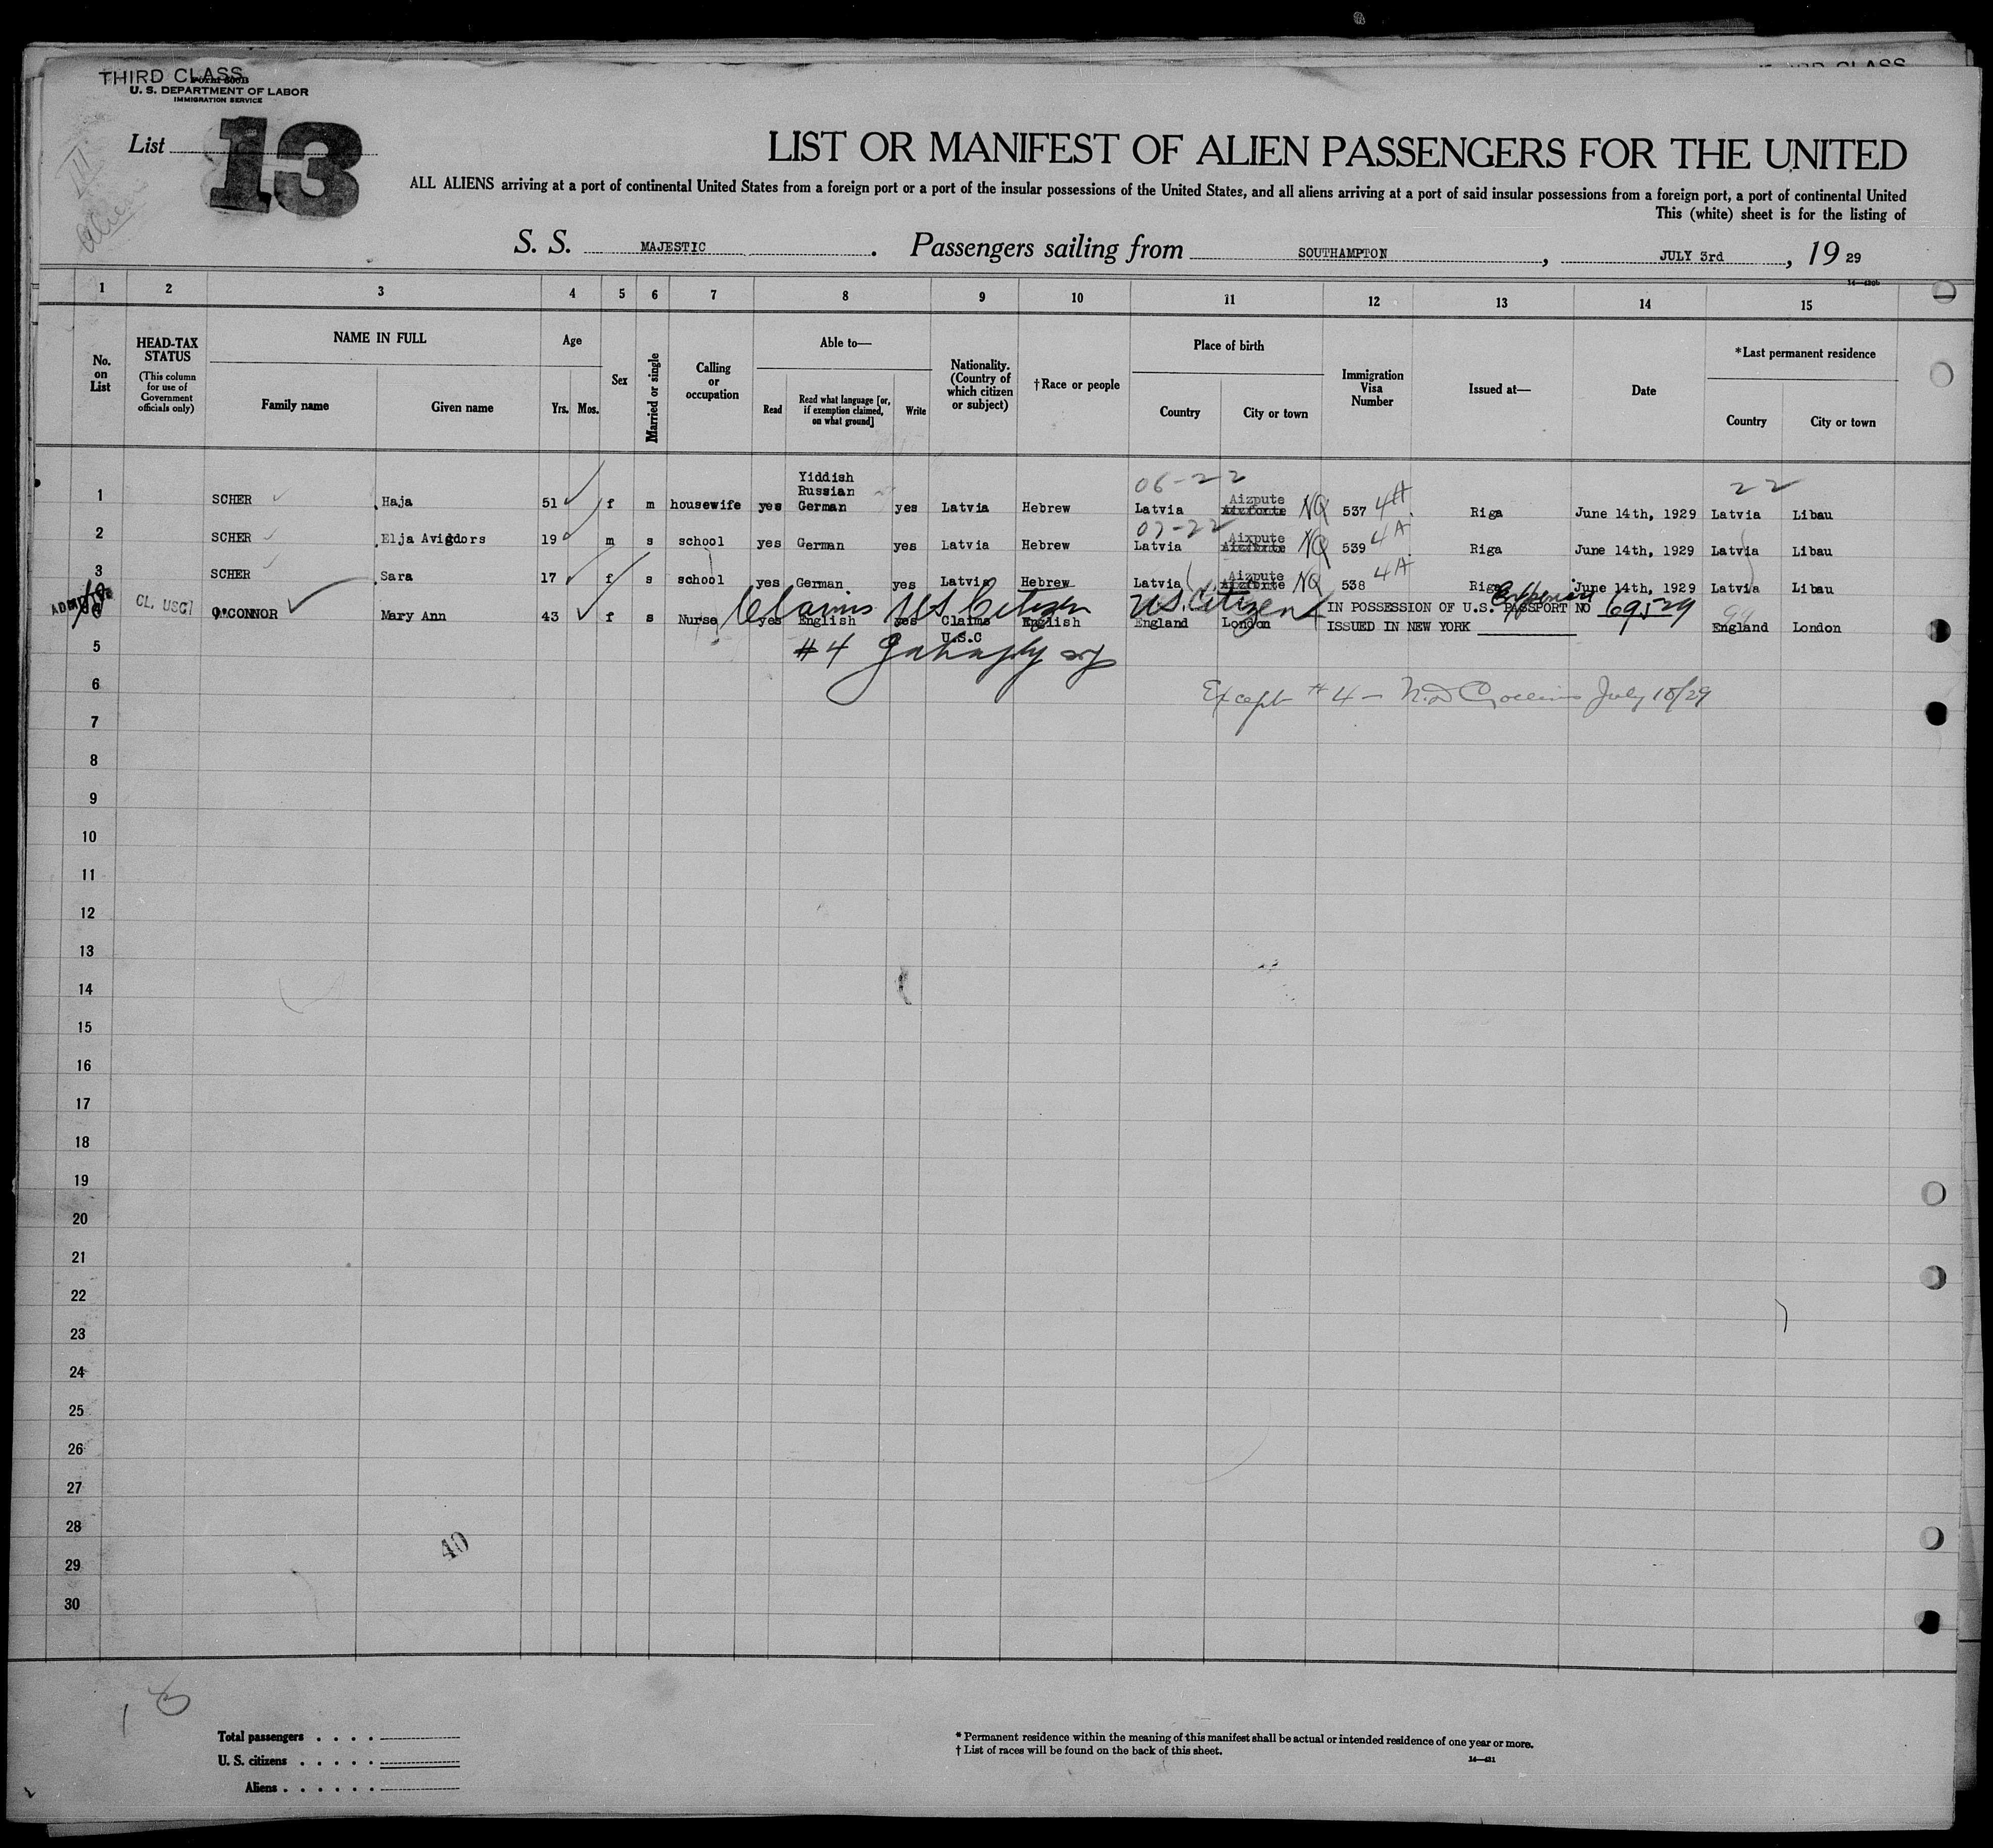 THIRD CLASS
Form 500B
U. S. DEPARTMENT OF LABOR
IMMIGRATION SERVICE
List 13
LIST OR MANIFEST OF ALIEN PASSENGERS FOR THE UNITED
ALL ALIENS arriving at a port of continental United States from a foreign port or a port of the insular possessions of the United States, and all aliens arriving at a port of said insular possessions from a foreign port, a port of continental United
This (white) sheet is for the listing of
S. S. MAJESTIC. Passengers sailing from SOUTHAMPTON, JULY 3rd, 19 29
1 2 3 4 5 6 7 8 9 10 11 12 13 14 15
No. on List
HEAD-TAX STATUS (This column for use of Government officials only)
NAME IN FULL
Family name Given name
Age
Yrs. Mos.
Sex
Married or single
Calling or occupation
Able to—
Read
Read what language [or, if exemption claimed, on what ground]
Write
Nationality. (Country of which citizen or subject)
†Race or people
Place of birth
Country City or town
Immigration Visa Number
Issued at—
Date
*Last permanent residence
Country City or town
06-22 22
1 SCHER Haja 51 f m housewife yes Yiddish Russian German yes Latvia Hebrew Latvia Aizpute NQ 537 4A Riga June 14th, 1929 Latvia Libau
07-22
2 SCHER Elja Avigdors 19 m s school yes German yes Latvia Hebrew Latvia Aizpute NQ 539 4A Riga June 14th, 1929 Latvia Libau
3 SCHER Sara 17 f s school yes German yes Latvia Hebrew Latvia Aizpute NQ 538 4A Riga June 14th, 1929 Latvia Libau
Claims US Citizen U.S. Citizen
ADMITTED CL. USC O'CONNOR Mary Ann 43 f s Nurse yes English yes Claims U.S.C English England London IN POSSESSION OF U.S. PASSPORT NO 69529 99 England London
ISSUED IN NEW YORK
5 #4
6 Except #4 — July 10/29
7
8
9
10
11
12
13
14
15
16
17
18
19
20
21
22
23
24
25
26
27
28
40
29
30
Total passengers . . . .
U. S. citizens . . . . .
Aliens . . . . . .
* Permanent residence within the meaning of this manifest shall be actual or intended residence of one year or more.
† List of races will be found on the back of this sheet.
14—431